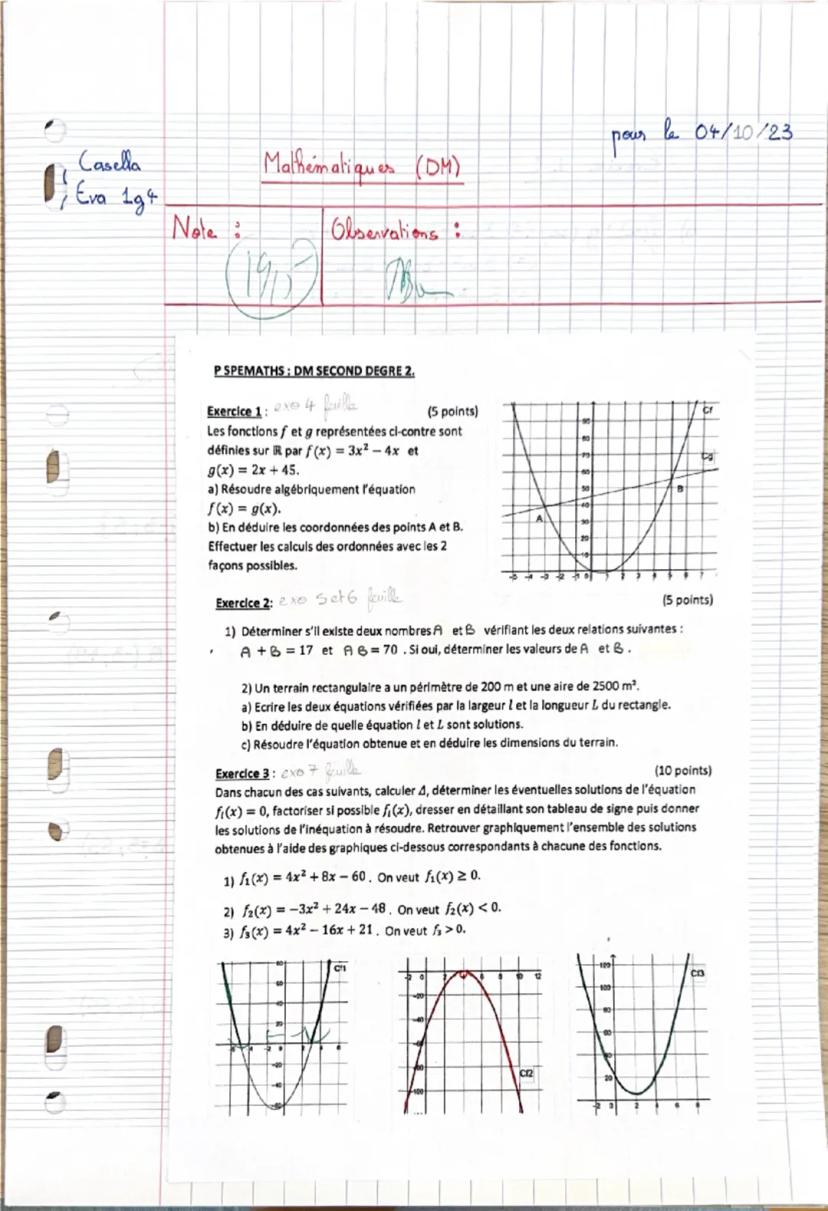 pour le 04/10/23
Casella
Eva 1g4
Mathématiques (DM)
Note :
Observations :
19,5
P SPEMATHS : DM SECOND DEGRE 2.
Exercice 1 : exo 4 feuille (5 points)
Les fonctions f et g représentées ci-contre sont
définies sur ℝ par f(x) = 3x² − 4x et
g(x) = 2x + 45.
a) Résoudre algébriquement l'équation
f(x) = g(x).
b) En déduire les coordonnées des points A et B.
Effectuer les calculs des ordonnées avec les 2
façons possibles.
Cf
Cg
A
B
90
80
70
60
50
40
30
20
10
-5 -4 -3 -2 -1 0 1 2 3 4 5 6 7
Exercice 2: exo 5 et 6 feuille (5 points)
1) Déterminer s'il existe deux nombres A et B vérifiant les deux relations suivantes :
A + B = 17 et A B = 70 . Si oui, déterminer les valeurs de A et B .
2) Un terrain rectangulaire a un périmètre de 200 m et une aire de 2500 m².
a) Ecrire les deux équations vérifiées par la largeur l et la longueur L du rectangle.
b) En déduire de quelle équation l et L sont solutions.
c) Résoudre l'équation obtenue et en déduire les dimensions du terrain.
Exercice 3 : exo 7 feuille (10 points)
Dans chacun des cas suivants, calculer Δ, déterminer les éventuelles solutions de l'équation
fᵢ(x) = 0, factoriser si possible fᵢ(x), dresser en détaillant son tableau de signe puis donner
les solutions de l'inéquation à résoudre. Retrouver graphiquement l'ensemble des solutions
obtenues à l'aide des graphiques ci-dessous correspondants à chacune des fonctions.
1) f₁(x) = 4x² + 8x − 60 . On veut f₁(x) ≥ 0.
2) f₂(x) = −3x² + 24x − 48 . On veut f₂(x) < 0.
3) f₃(x) = 4x² − 16x + 21 . On veut f₃ > 0.
Cf1
Cf2
Cf3